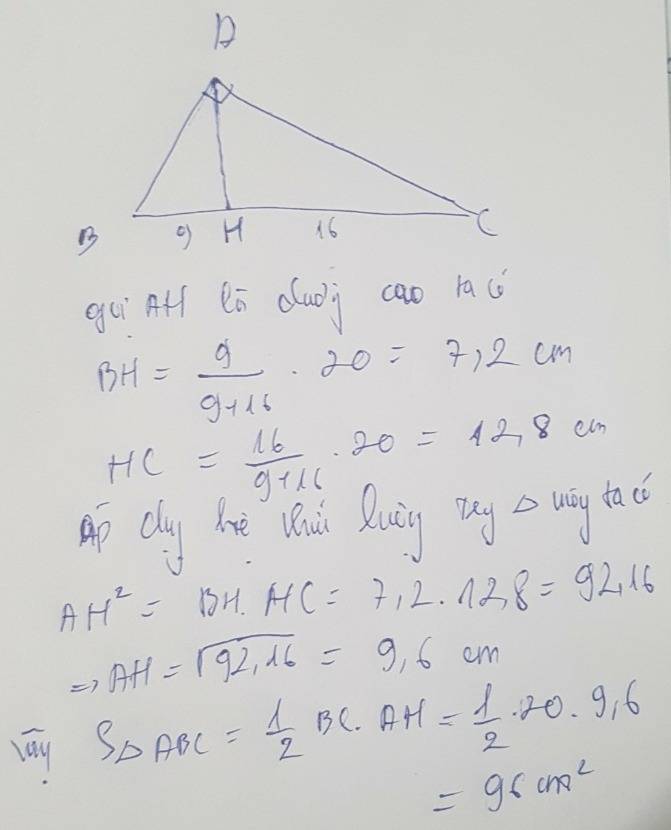 A
B 9 H 16 C
gọi AH là đường cao ta có
BH = 9/(9+16) . 20 = 7,2 cm
HC = 16/(9+16) . 20 = 12,8 cm
Áp dụng hệ thức lượng trong △ vuông ta có
AH² = BH. HC = 7,2 . 12,8 = 92,16
=> AH = √92,16 = 9,6 cm
Vậy S△ABC = 1/2 BC. AH = 1/2 . 20 . 9,6
= 96 cm²